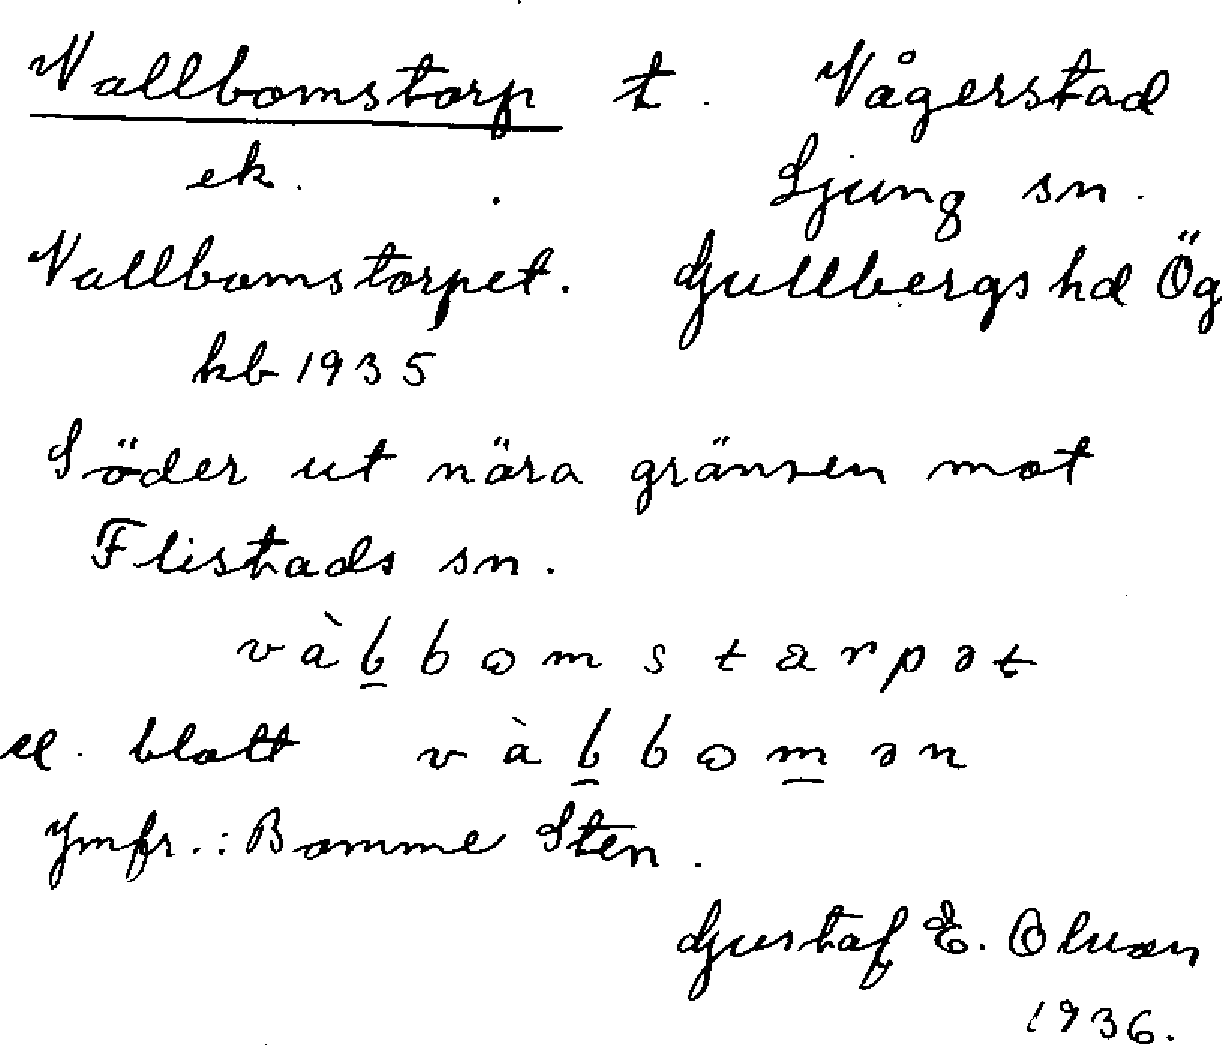 Vallbomstorp t. Vågerstad
ek. Ljung sn.
Vallbomstorpet. Gullbergs hd Ög
kb 1935
Söder ut nära gränsen mot
Flistads sn.
vàb̲bomstarpət
el. blott vàb̲bom̲ən
Jmfr.: Bomme Sten.
Gustaf E. Olsson
1936.